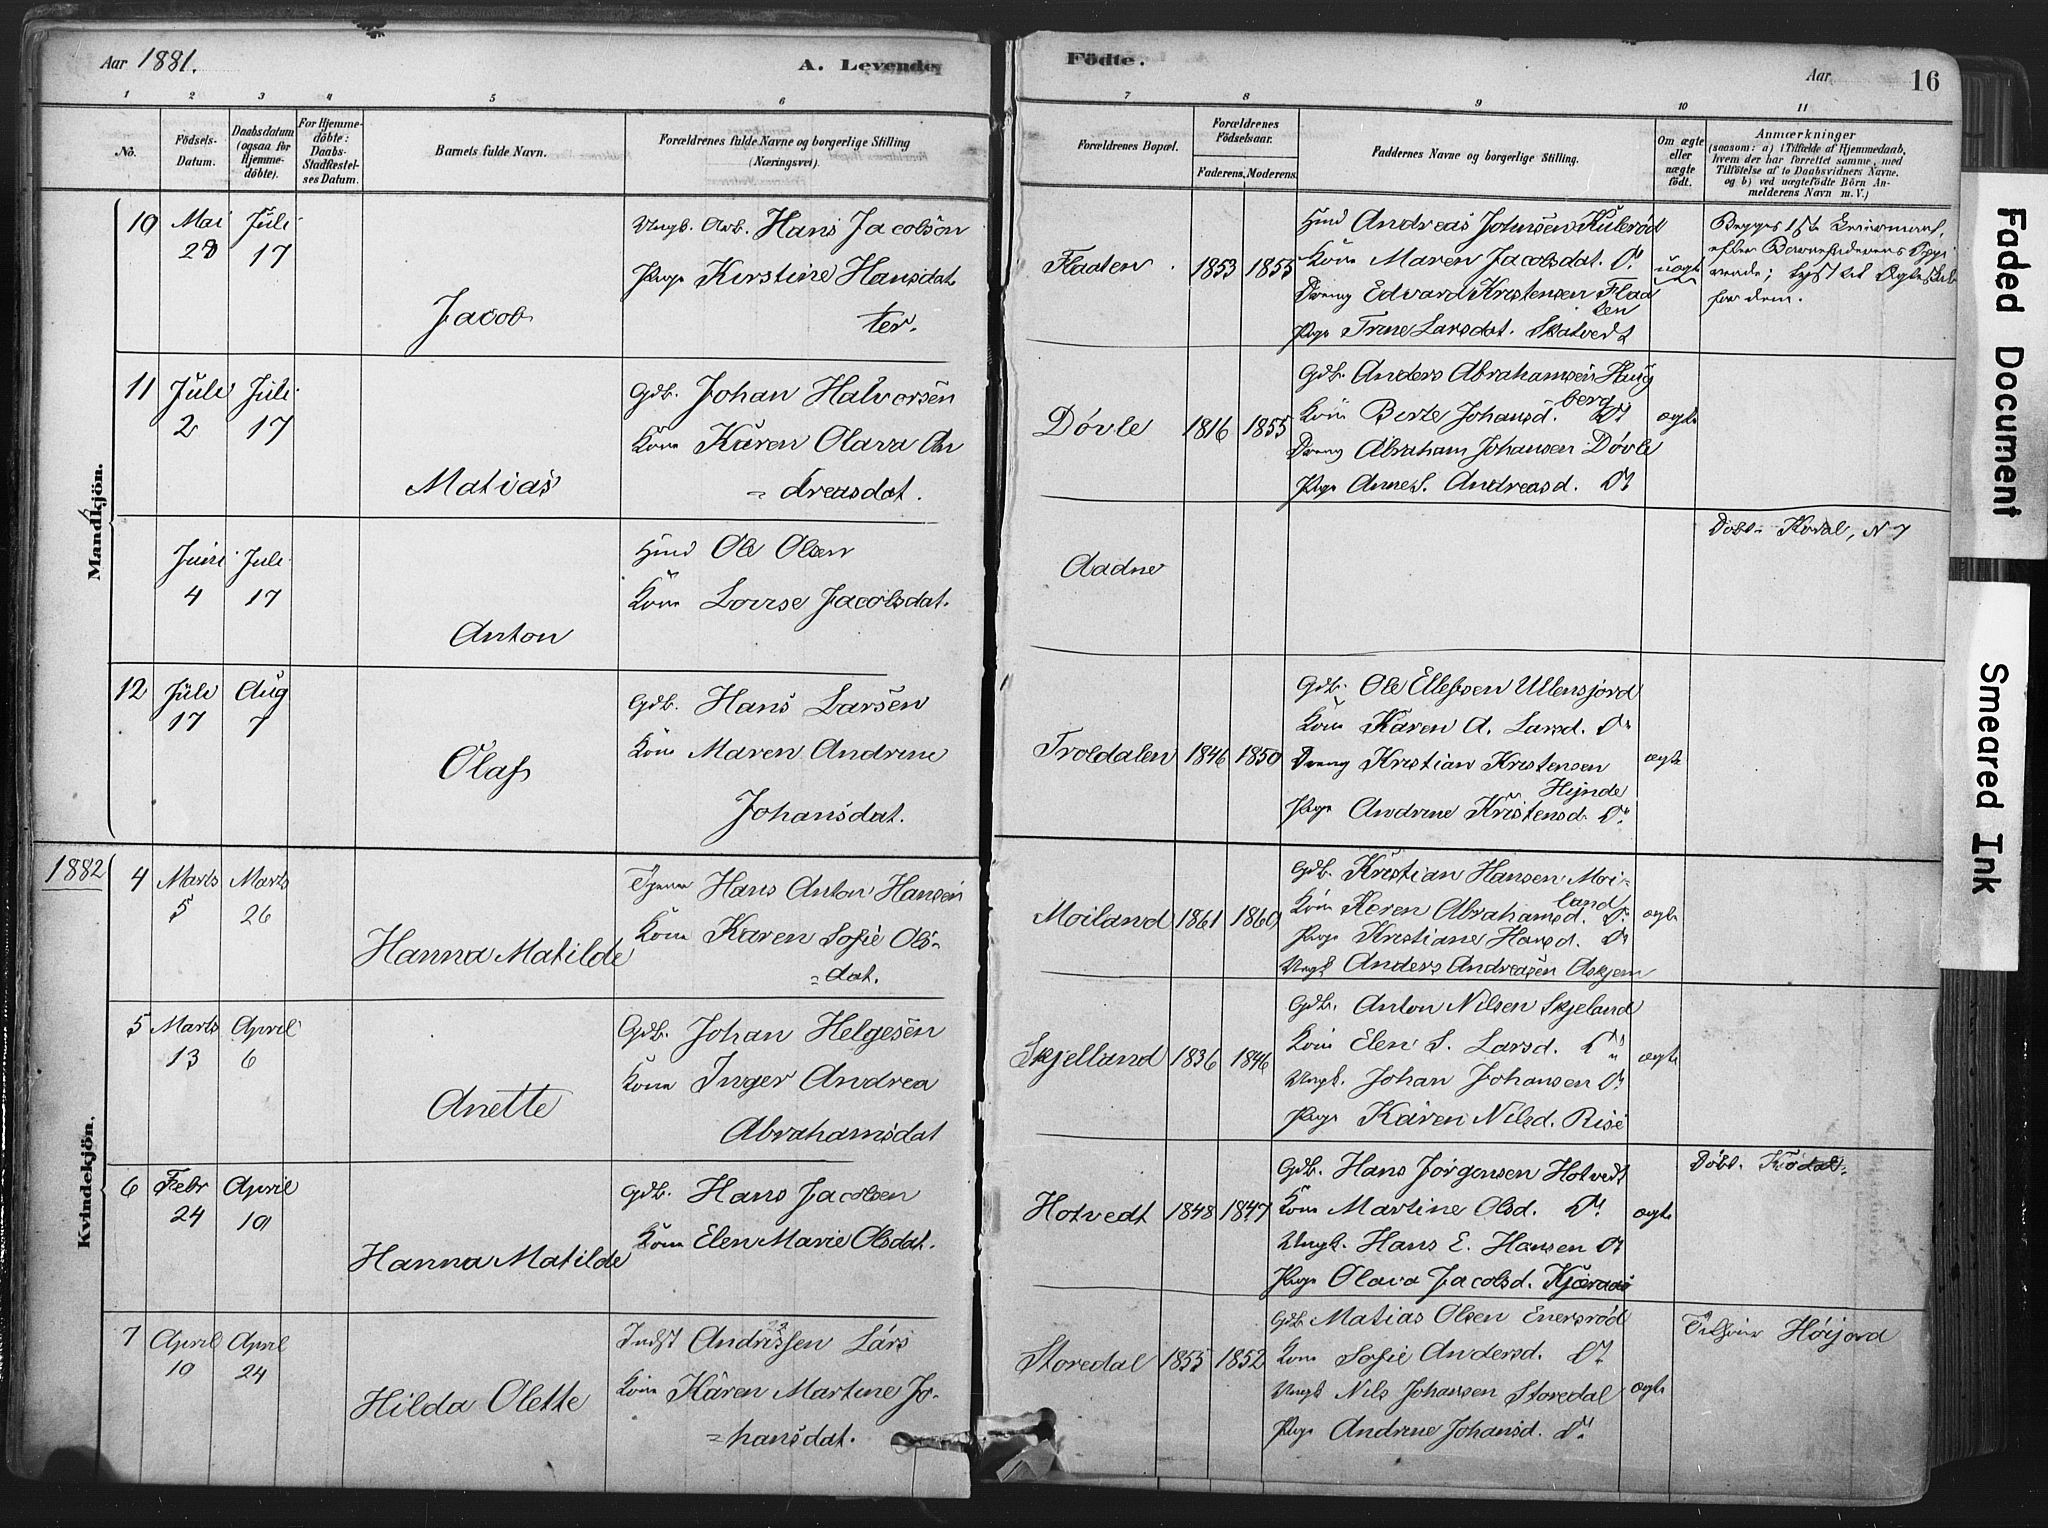 Aar 1881.
A. Levende
Födte.
Aar
16
1
2
3
4
5
6
7
8
9
10
11
No.
Födsels-
Datum.
Daabsdatum
(ogsaa for
Hjemme-
döbte).
For Hjemme-
döbte:
Daabs-
Stadfæstel-
ses Datum.
Barnets fulde Navn.
Forældrenes fulde Navne og borgerlige Stilling
(Næringsvei).
Forældrenes Bopæl.
Forældrenes
Födselsaar.
Faderens. Moderens.
Faddernes Navne og borgerlige Stilling.
Om ægte
eller
uægte
födt.
Anmærkninger
(saasom: a) i Tilfælde af Hjemmedaab,
hvem der har forrettet samme, med
Tilföielse af to Daabsvidners Navne.
og b) ved uægtefödte Börn An-
melderens Navn m. V.)
Mandkjön.
10
Mai
28
Juli
17
Jacob
Ungk. Arb. Hans Jacobsen
Pige Kirstine Hansdat
ter.
Flaaten
1853
1855
Hmd Andreas Johnsen Kulerød
Kone Maren Jacobsdat. Do
Dreng Edvard Kristensen Flaa
ten
Pige Trine Larsdat. Skatvedt
uægte
Begges 1ste
for dem.
11
Juli
2
Juli
17
Matias
Gdb. Johan Halvorsen
Kone Karen Olava An
= dreasdat.
Døvle
1816
1855
Gdb. Anders Abrahamsen Haug
berg
Kone Berte Johansd. Do
Dreng Abraham Johansen Døvle
Pige Anne S. Andreasd. Do
ægte
Juni
4
Juli
17
Anton
Hmd Ole Olsen
Kone Lovise Jacobsdat.
Aadne
Døbt Kodal, N 7
12
Juli
17
Aug
7
Olaf
Gdb. Hans Larsen
Kone Maren Andrine
Johansdat.
Troldalen
1846
1850
Gdb. Ole Ellefsen Ullensjord
Kone Karen A. Larsd. Do
Dreng Kristian Kristensen
Hynde
Pige Andrine Kristensd. Do
ægte
1882
Kvindekjön.
4
Marts
5
Marts
26
Hanna Matilde
Tjener Hans Anton Hansen
Kone Karen Sofie Ols-
=dat.
Moiland
1861
1860
Gdb. Kristian Hansen Moi-
land
Kone Karen Abrahamsd. Do
Pige Kristiane Hansd. Do
Ungk Anders Andreasen Askjem
ægte
5
Marts
13
April
6
Anette
Gdb. Johan Helgesen
Kone Inger Andrea
Abrahamsdat
Skjelland
1836
1846
Gdb. Anton Nilsen Skjeland
Kone Elen S. Larsd. Do
Ungk. Johan Johansen Do
Pige Karen Nilsd. Rise
ægte
6
Febr
24
April
10
Hanna Matilde
Gdb. Hans Jacobsen
Kone Elen Marie Olsdat.
Hotvedt
1848
1847
Gdb. Hans Jørgensen Hotvedt
Kone Martine Olsd. Do
Ungk. Hans E. Hansen Do
Pige Olava Jacobsd. Kjæraas
ægte
Døbt. Kodal.
7
April
10
April
24
Hilda Olette
Indst Andrissen Lars
Kone Karen Martine Jo-
=hansdat.
Storedal
1855
1852
Gdb. Matias Olsen Enersrød
Kone Sofie Andersd. Do
Ungk Nils Johansen Storedal
Pige Andrine Johansd. Do
ægte
Høijord
Faded Document
Smeared Ink